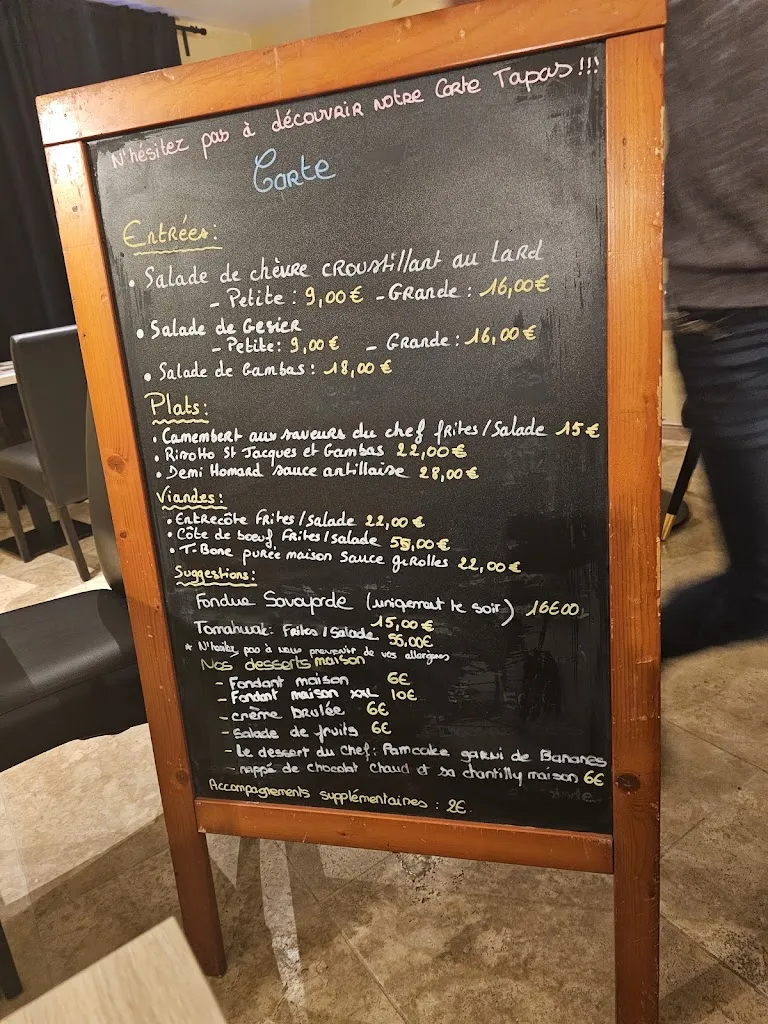 N'hésitez pas à découvrir notre Carte Tapas!!!
Carte
Entrées:
• Salade de chèvre croustillant au lard
- Petite : 9,00€ - Grande : 16,00€
• Salade de Gesier
- Petite: 9,00€ - Grande : 16,00€
• Salade de Gambas : 18,00€
Plats:
• Camembert aux saveurs du chef frites/Salade 15€
• Risotto St Jacques et Gambas 22,00€
• Demi Homard sauce antillaise 28,00€
Viandes:
• Entrecôte Frites/Salade 22,00€
• Côte de boeuf Frites/Salade 55,00€
• T-Bone purée maison Sauce girolles 22,00€
Suggestions:
Fondue Savoyarde (uniquement le soir) 16€00
15,00€
Tomahwak: Frites/Salade 55,00€
* N'hésitez pas à nous prevenir de vos allergenes
Nos desserts maison
- Fondant maison 6€
- Fondant maison XXL 10€
- crème brulée 6€
- Salade de fruits 6€
- Le dessert du chef: Pamcake garni de Bananes
nappé de chocolat chaud et sa chantilly maison 6€
Accompagnements supplémentaires : 2€